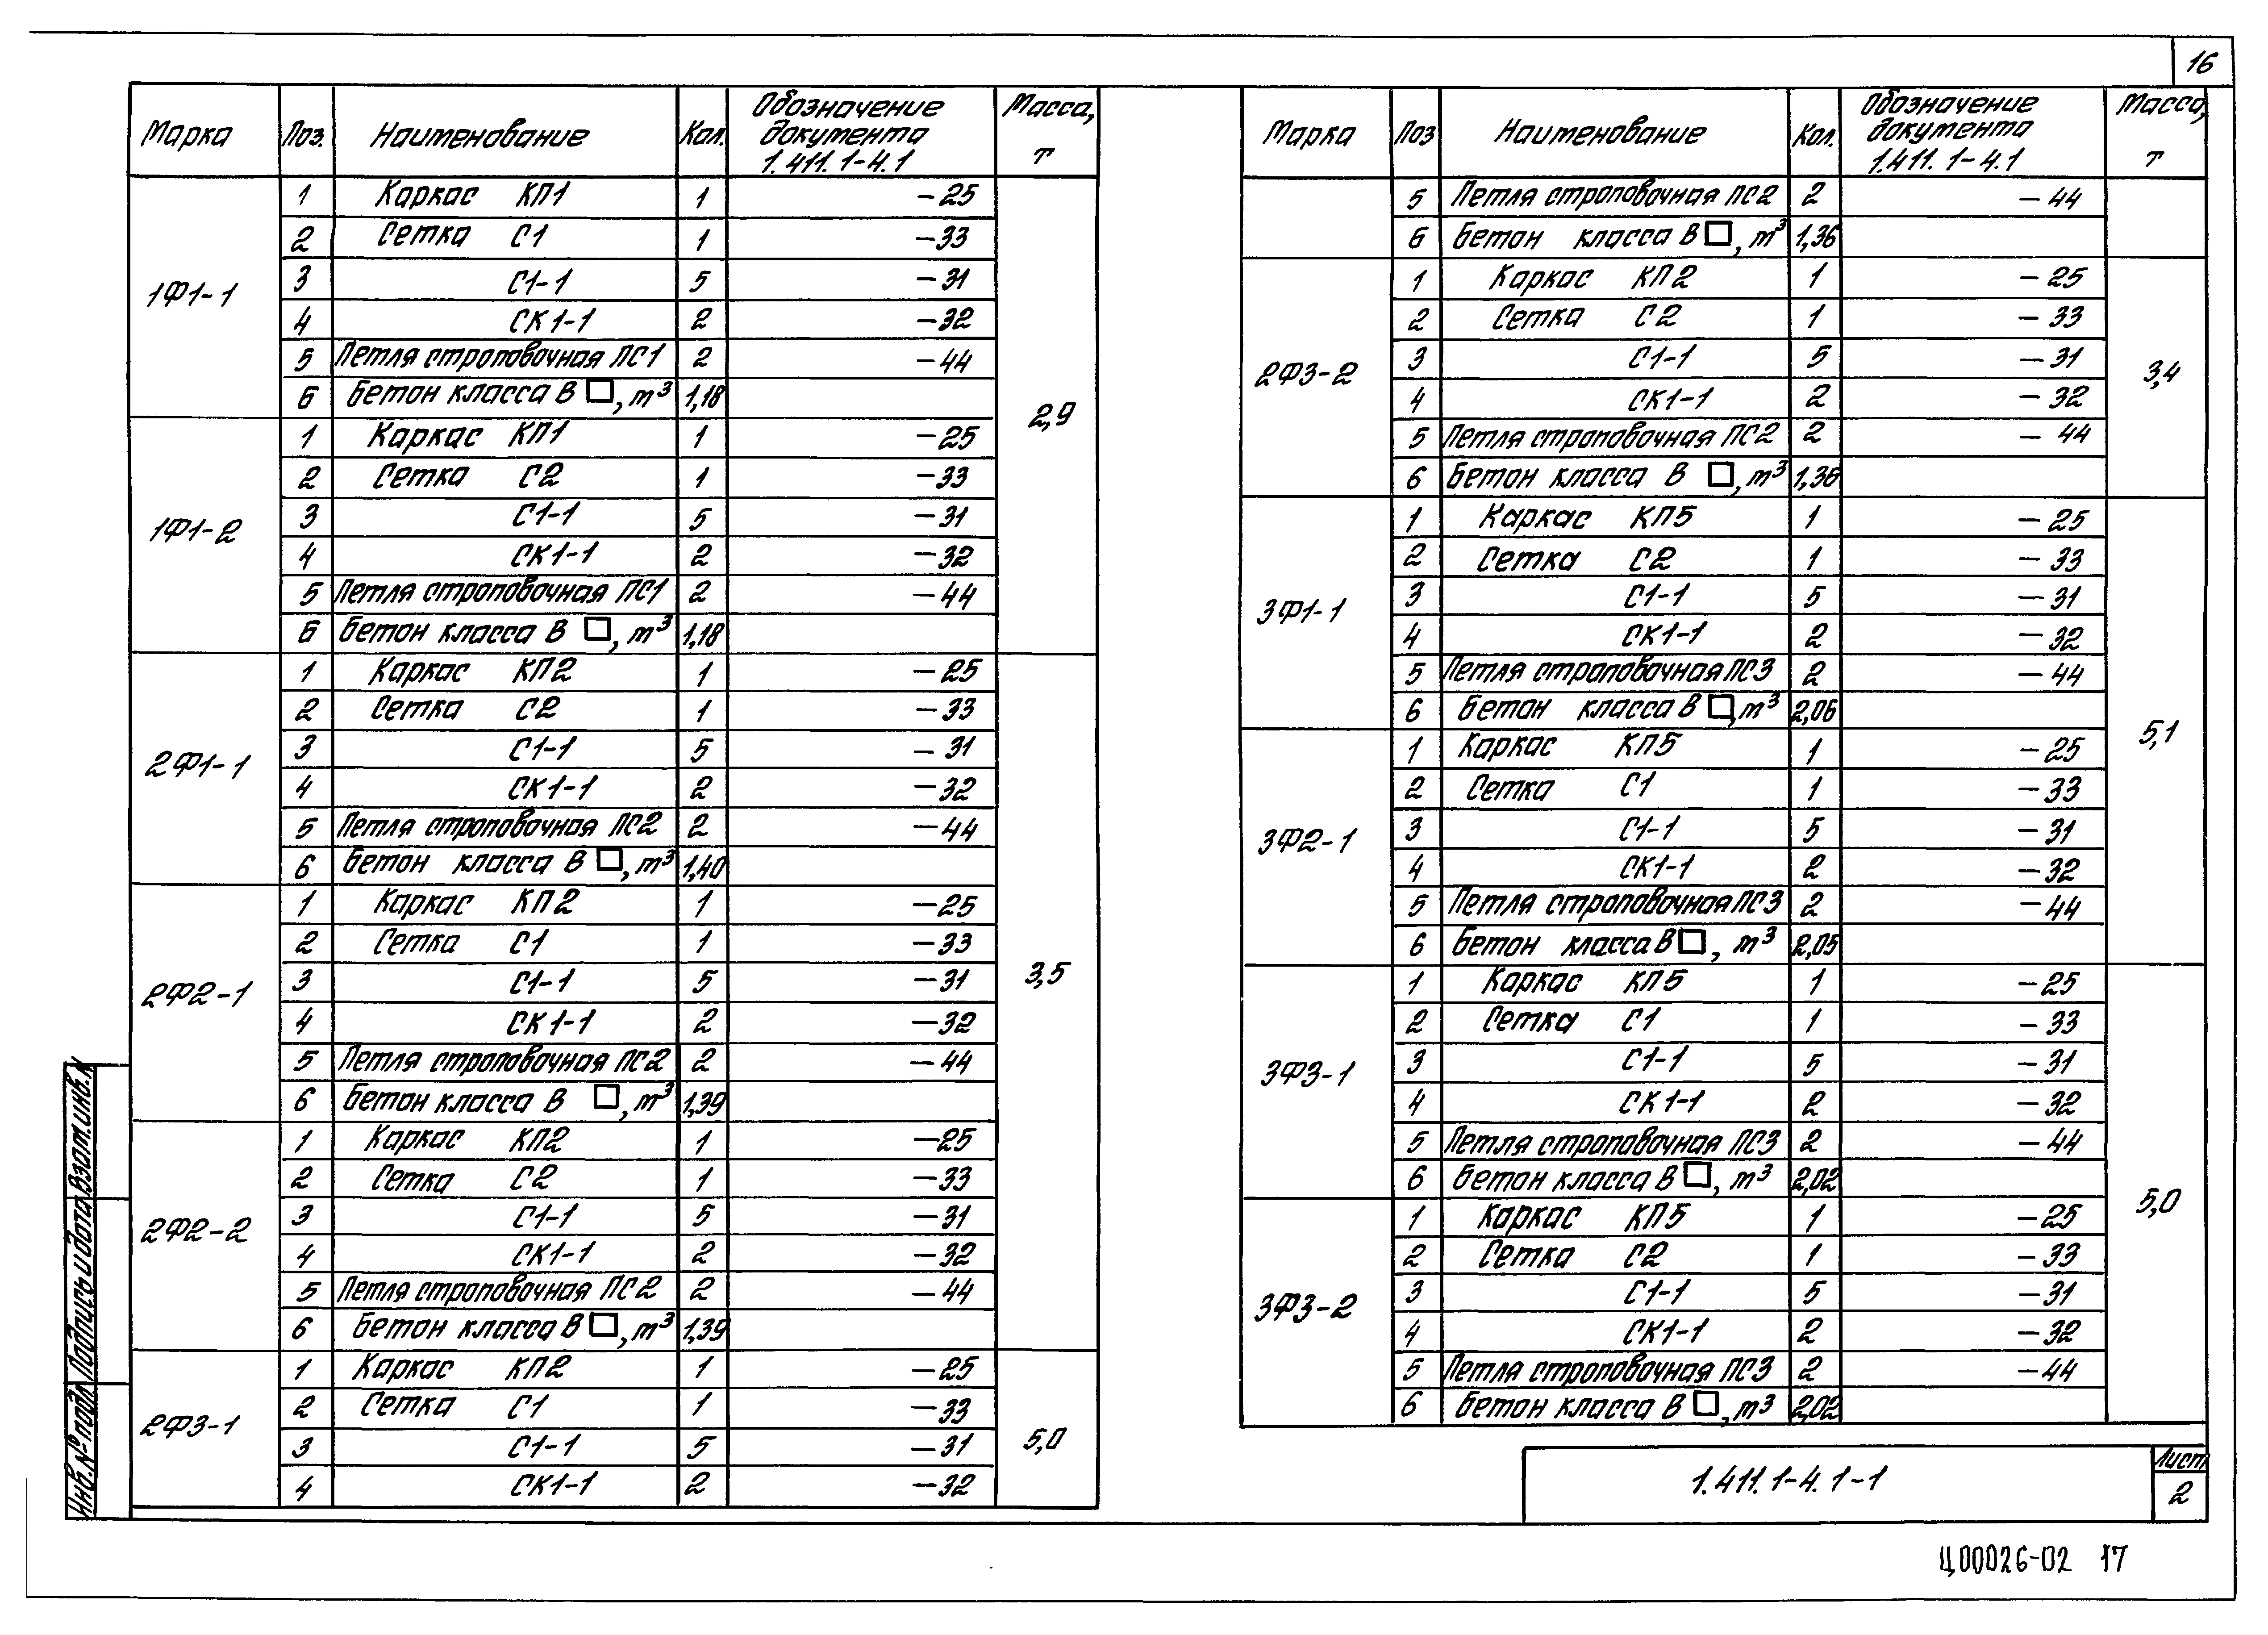 16
Марка Поз. Наименование Кол. Обозначение документа 1.411.1-4.1 Масса, т
1Ф1-1
1 Каркас КП1 1 -25
2 Сетка С1 1 -33
3 С1-1 5 -31
4 СК1-1 2 -32
5 Петля строповочная ПС1 2 -44
6 Бетон класса В □, м³ 1,18
2,9
1Ф1-2
1 Каркас КП1 1 -25
2 Сетка С2 1 -33
3 С1-1 5 -31
4 СК1-1 2 -32
5 Петля строповочная ПС1 2 -44
6 Бетон класса В □, м³ 1,18
2Ф1-1
1 Каркас КП2 1 -25
2 Сетка С2 1 -33
3 С1-1 5 -31
4 СК1-1 2 -32
5 Петля строповочная ПС2 2 -44
6 Бетон класса В □, м³ 1,40
2Ф2-1
1 Каркас КП2 1 -25
2 Сетка С1 1 -33
3 С1-1 5 -31
3,5
4 СК1-1 2 -32
5 Петля строповочная ПС2 2 -44
6 Бетон класса В □, м³ 1,39
2Ф2-2
1 Каркас КП2 1 -25
2 Сетка С2 1 -33
3 С1-1 5 -31
4 СК1-1 2 -32
5 Петля строповочная ПС2 2 -44
6 Бетон класса В □, м³ 1,39
2Ф3-1
1 Каркас КП2 1 -25
2 Сетка С1 1 -33
3 С1-1 5 -31
5,0
4 СК1-1 2 -32
Марка Поз Наименование Кол. Обозначение документа 1.411.1-4.1 Масса, т
5 Петля строповочная ПС2 2 -44
6 Бетон класса В □, м³ 1,36
2Ф3-2
1 Каркас КП2 1 -25
2 Сетка С2 1 -33
3 С1-1 5 -31
3,4
4 СК1-1 2 -32
5 Петля строповочная ПС2 2 -44
6 Бетон класса В □, м³ 1,36
3Ф1-1
1 Каркас КП5 1 -25
2 Сетка С2 1 -33
3 С1-1 5 -31
4 СК1-1 2 -32
5 Петля строповочная ПС3 2 -44
6 Бетон класса В □, м³ 2,06
5,1
3Ф2-1
1 Каркас КП5 1 -25
2 Сетка С1 1 -33
3 С1-1 5 -31
4 СК1-1 2 -32
5 Петля строповочная ПС3 2 -44
6 Бетон класса В □, м³ 2,05
3Ф3-1
1 Каркас КП5 1 -25
2 Сетка С1 1 -33
3 С1-1 5 -31
4 СК1-1 2 -32
5 Петля строповочная ПС3 2 -44
6 Бетон класса В □, м³ 2,02
5,0
3Ф3-2
1 Каркас КП5 1 -25
2 Сетка С2 1 -33
3 С1-1 5 -31
4 СК1-1 2 -32
5 Петля строповочная ПС3 2 -44
6 Бетон класса В □, м³ 2,02
Инв.№ подл. Подпись и дата Взам.инв.№
1.411.1-4.1-1
Лист
2
Ц00026-02 17